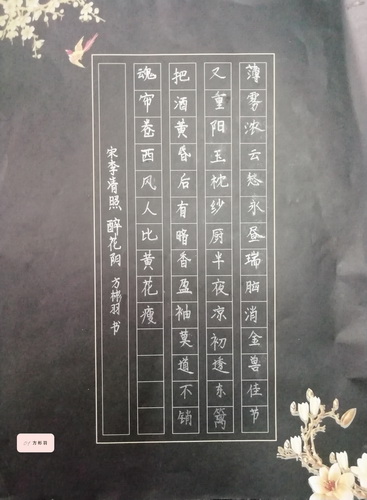 薄雾浓云愁永昼瑞脑消金兽佳节
又重阳玉枕纱厨半夜凉初透东篱
把酒黄昏后有暗香盈袖莫道不销
魂帘卷西风人比黄花瘦
宋李清照 醉花阴 方羽 书